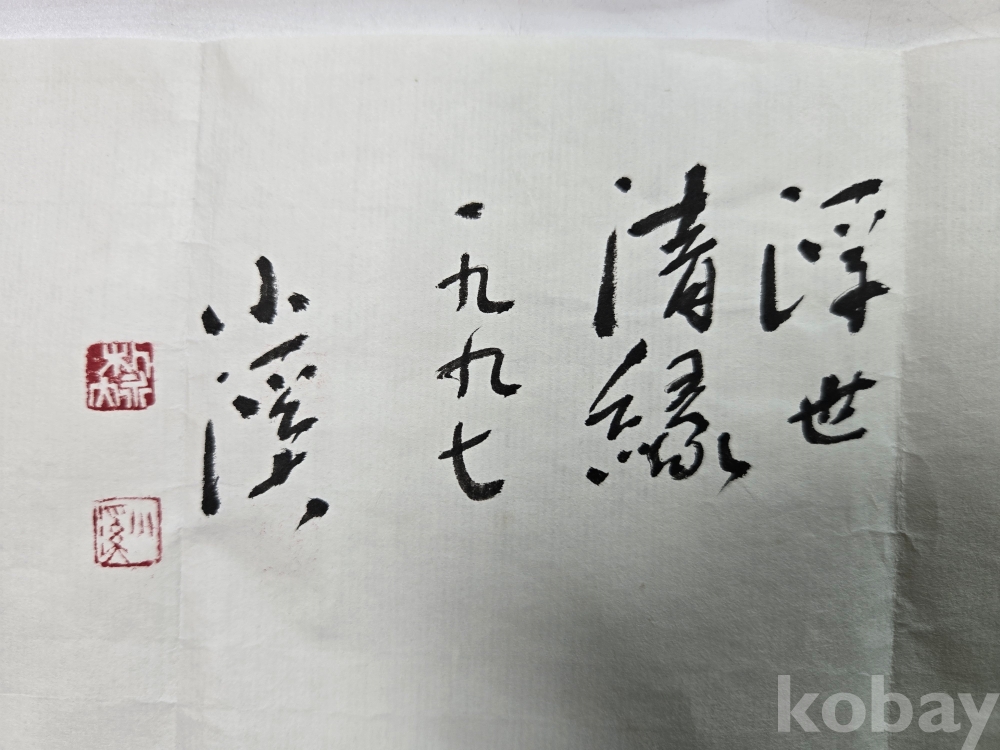 浮世
清緣
一九九七
小溪
小溪
kobay